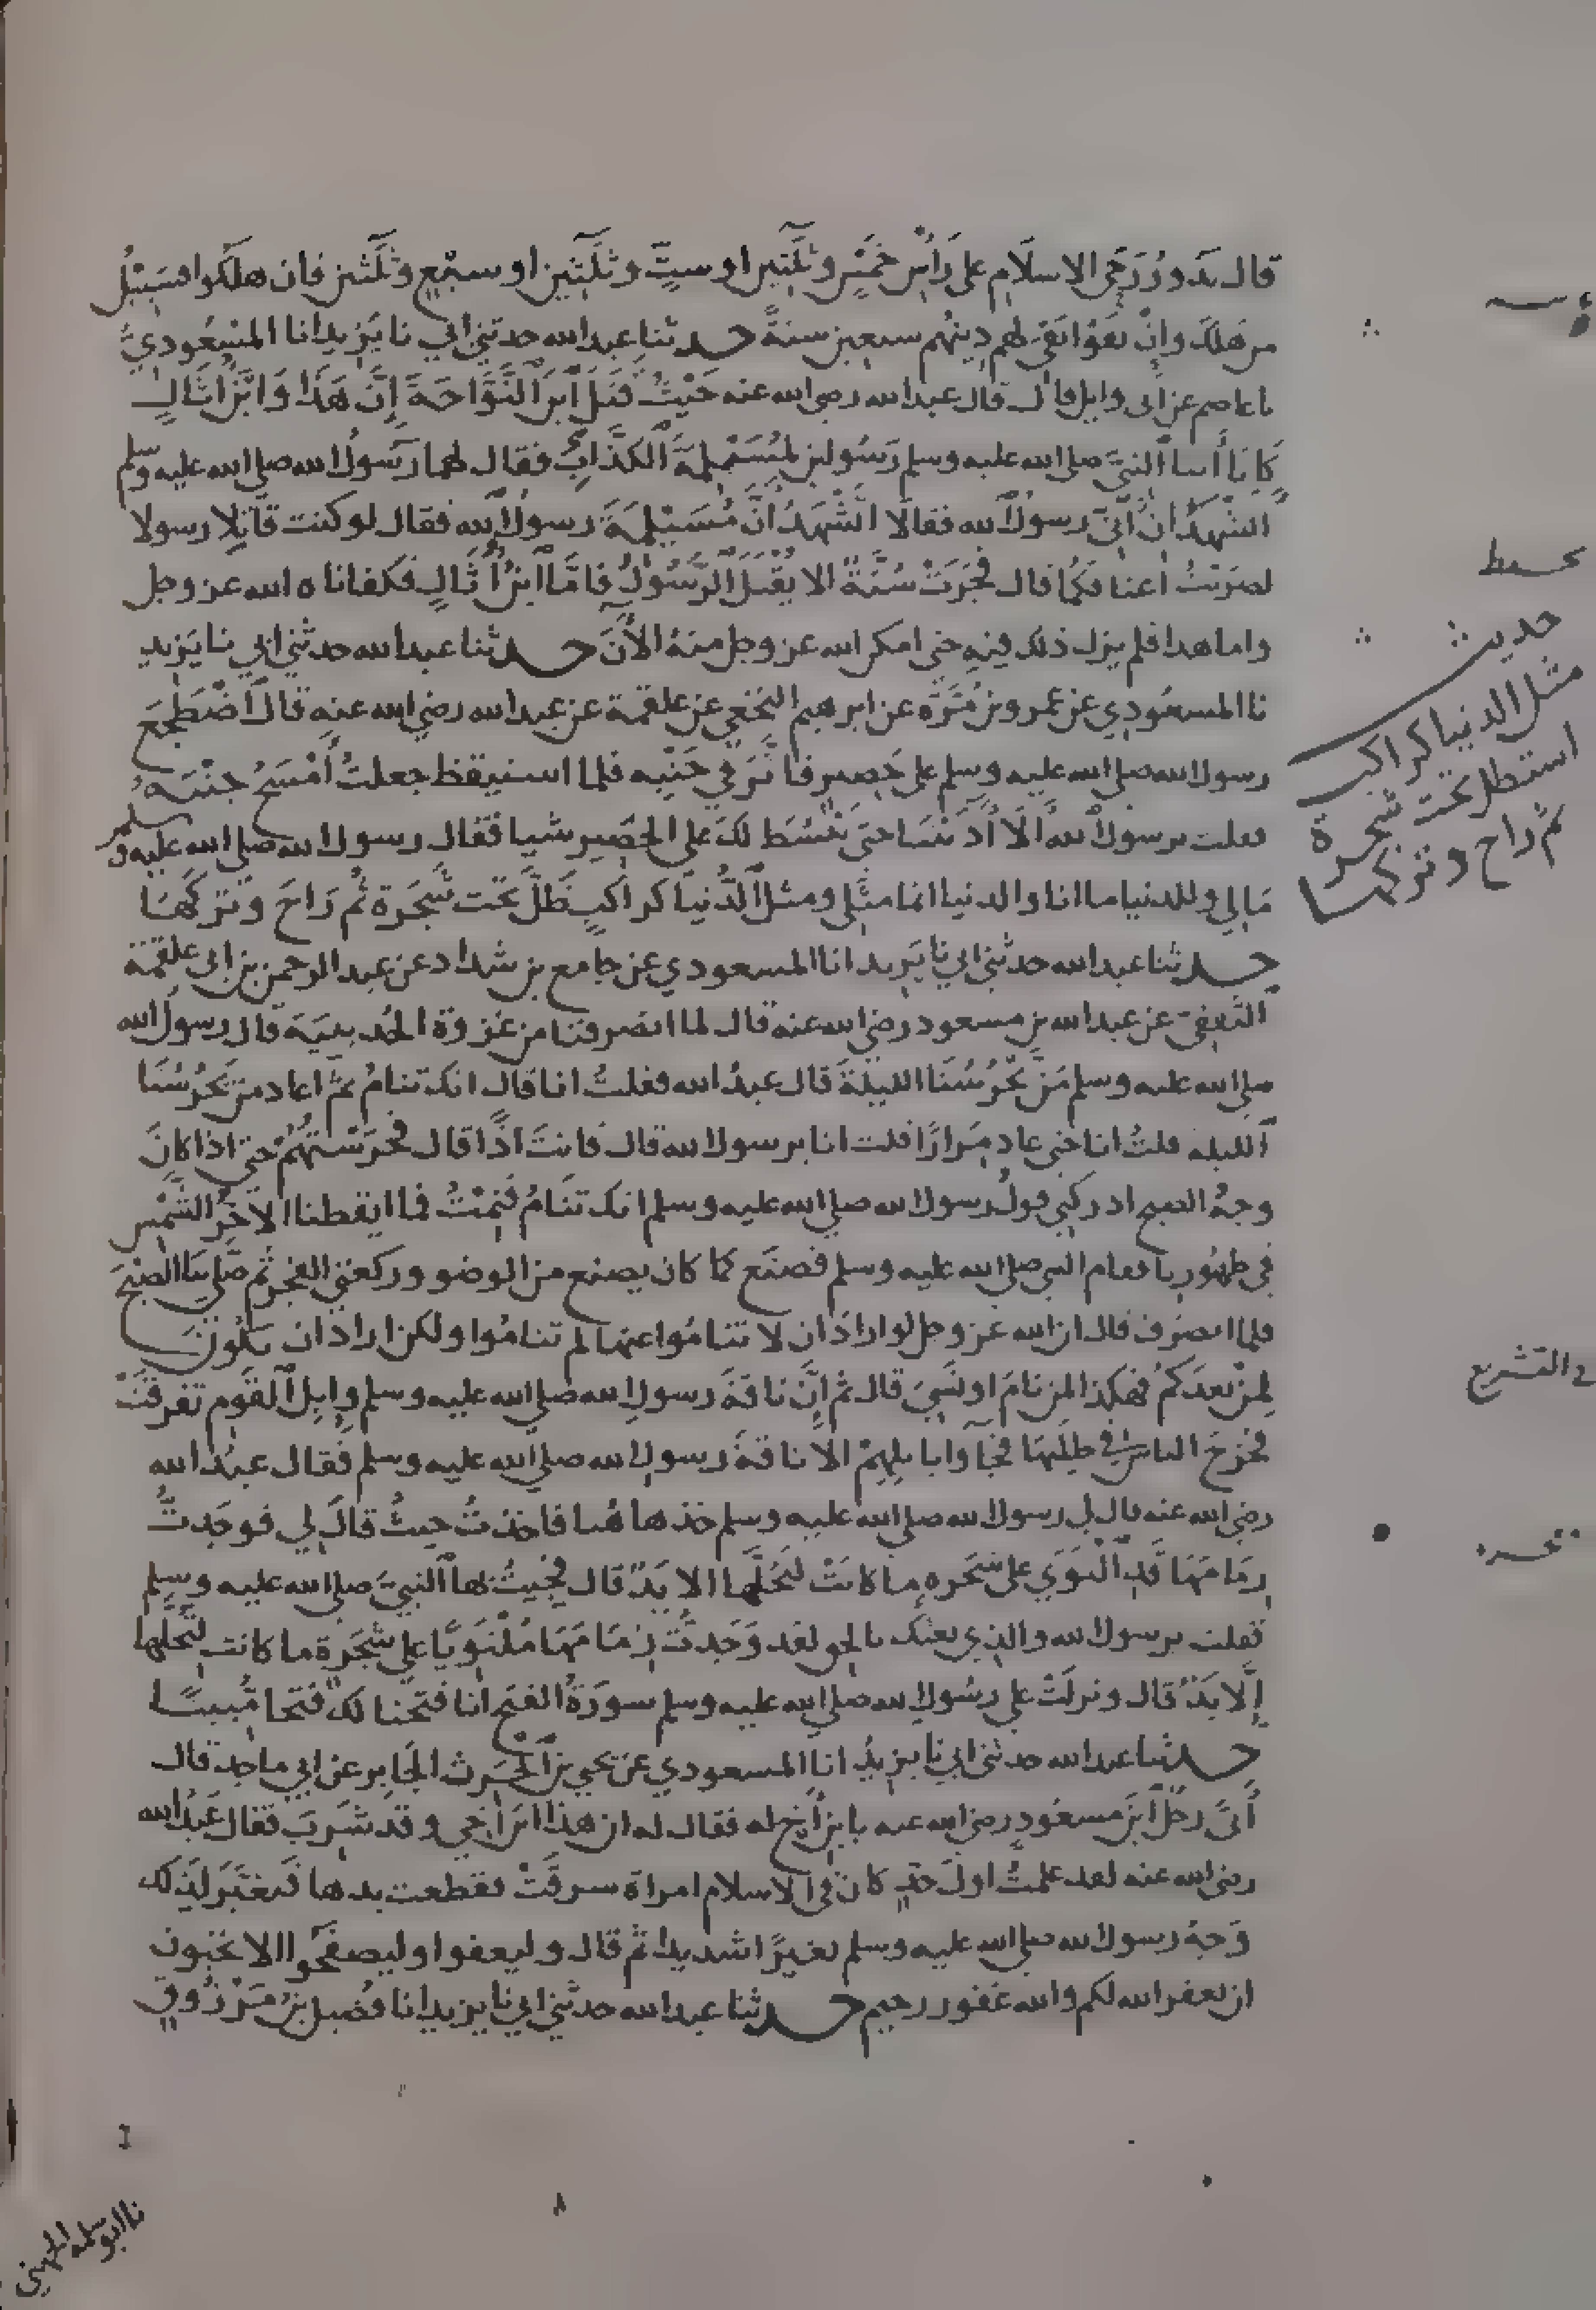 قال تدور رحى الاسلام على رأس خمس وثلثين او ست وثلثين او سبع وثلثين فان هلكوا فسبيل
من هلك وإن بقوا بقي لهم دينهم سبعين سنة حدثنا عبد الله حدثني ابي نا يزيد انا المسعودي
نا عاصم عن ابي وايل قال قال عبد الله رضي الله عنه حيث قتل ابن النواحة إن هذا وابن اثال
كانا أتيا النبي صلى الله عليه وسلم رسولين لمسيلمة الكذاب فقال لهما رسول الله صلى الله عليه وسلم
اتشهدان اني رسول الله فقالا اتشهد ان مسيلمة رسول الله فقال لو كنت قاتلا رسولا
لضربت اعناقكما قال فجرت سنة الا يقتل الرسول فاما ابن أثال فكفاناه الله عز وجل
واما هذا فلم يزل ذلك فيه حتى امكن الله عز وجل منه الآن حدثنا عبد الله حدثني ابي نا يزيد
نا المسعودي عن عمرو بن مرة عن ابرهيم النخعي عن علقمة عن عبد الله رضي الله عنه قال اضطجع
رسول الله صلى الله عليه وسلم على حصير فاثر في جنبه فلما استيقظ جعلت أمسح جنبه
فقلت يرسول الله ألا آذنتنا حتى نبسط لك على الحصير شيا فقال رسول الله صلى الله عليه وسلم
مالي وللدنيا ما انا والدنيا انما مثلي ومثل الدنيا كراكب ظل تحت شجرة ثم راح وتركها
حدثنا عبد الله حدثني ابي نا يزيد انا المسعودي عن جامع بن شداد عن عبد الرحمن بن ابي علقمة
الثقفي عن عبد الله بن مسعود رضي الله عنه قال لما انصرفنا من غزوة الحديبية قال رسول الله
صلى الله عليه وسلم من يحرسنا الليلة قال عبد الله فقلت انا قال انك تنام ثم اعاد من يحرسنا
الليله قلت انا حتى عاد مرارا قلت انا يرسول الله قال فانت اذا قال فحرستهم حتى اذا كان
وجه الصبح ادركني قول رسول الله صلى الله عليه وسلم انك تنام فنمت فما ايقظنا الا حر الشمس
في ظهورنا فقام النبي صلى الله عليه وسلم فصنع كما كان يصنع من الوضو وركعتي الفجر ثم صلى بنا الصبح
فلما انصرف قال ان الله عز وجل لو اراد ان لا تناموا عنها لم تناموا ولكن اراد ان تكون
لمن بعدكم فهكذا لمن نام او نسي قال ثم إن ناقة رسول الله صلى الله عليه وسلم وابل القوم تفرقت
فخرج الناس في طلبها فجآوا بابلهم الا ناقة رسول الله صلى الله عليه وسلم فقال عبد الله
رضي الله عنه قال لي رسول الله صلى الله عليه وسلم خذ ها هنا فاخذت حيث قال لي فوجدت
زمامها قد التوى على شجره ما كانت لتحلها الا يد قال فجيت بها النبي صلى الله عليه وسلم
فقلت يرسول الله والذي بعثك بالحق لقد وجدت زمامها ملتويا على شجرة ما كانت لتحلها
إلا يد قال ونزلت على رسول الله صلى الله عليه وسلم سورة الفتح انا فتحنا لك فتحا مبينا
حدثنا عبد الله حدثني ابي نا يزيد انا المسعودي عن يحيى بن الحرث الجابر عن ابي ماجد قال
أتى رجل ابن مسعود رضي الله عنه بابن أخ له فقال له ان هذا ابن اخي وقد شرب فقال عبد الله
رضي الله عنه لقد علمت اول حد كان في الاسلام امراة سرقت فقطعت يدها فتغير لذلك
وجه رسول الله صلى الله عليه وسلم تغيرا شديدا ثم قال وليعفوا وليصفحوا الا تحبون
ان يغفر الله لكم والله غفور رحيم حدثنا عبد الله حدثني ابي نا يزيد انا فضيل بن مرزوق
حديث
مثل الدنيا كراكب
استظل تحت شجرة
ثم راح وتركها
التشريع
نا ابو سلمه الجهني